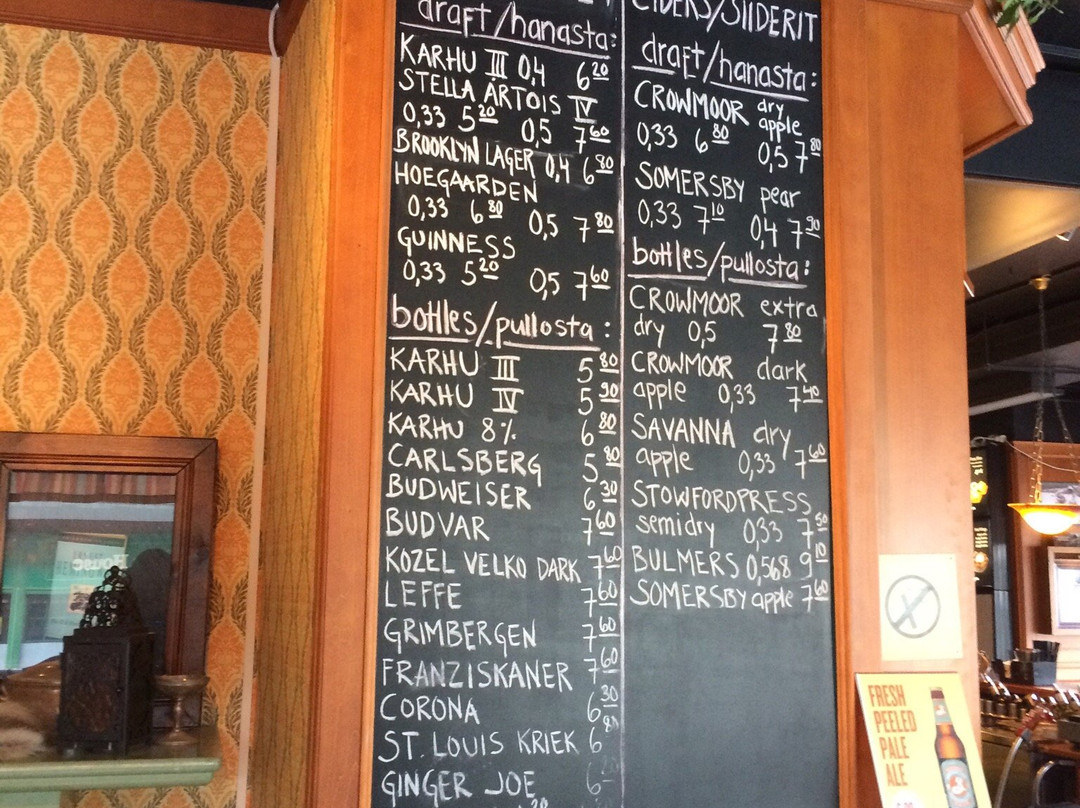 draft/hanasta:
KARHU III 0,4 6 20
STELLA ARTOIS IV
0,33 5 20 0,5 7 60
BROOKLYN LAGER 0,4 6 80
HOEGAARDEN
0,33 6 80 0,5 7 80
GUINNESS
0,33 5 20 0,5 7 60
bottles/pullosta:
KARHU III 5 80
KARHU IV 5 90
KARHU 8% 6 80
CARLSBERG 5 80
BUDWEISER 6 30
BUDVAR 7 60
KOZEL VELKO DARK 7 60
LEFFE 7 60
GRIMBERGEN 7 60
FRANZISKANER 7 60
CORONA 6 30
ST. LOUIS KRIEK 6 80
GINGER JOE 6
CIDERS/SIIDERIT
draft/hanasta:
CROWMOOR dry
apple
0,33 6 80 0,5 7 80
SOMERSBY pear
0,33 7 10 0,4 7 90
bottles/pullosta:
CROWMOOR extra
dry 0,5 7 80
CROWMOOR dark
apple 0,33 7 40
SAVANNA dry
apple 0,33 7 60
STOWFORDPRESS
semidry 0,33 7 50
BULMERS 0,568 9 10
SOMERSBY apple 7 60
FRESH
PEELED
PALE
ALE